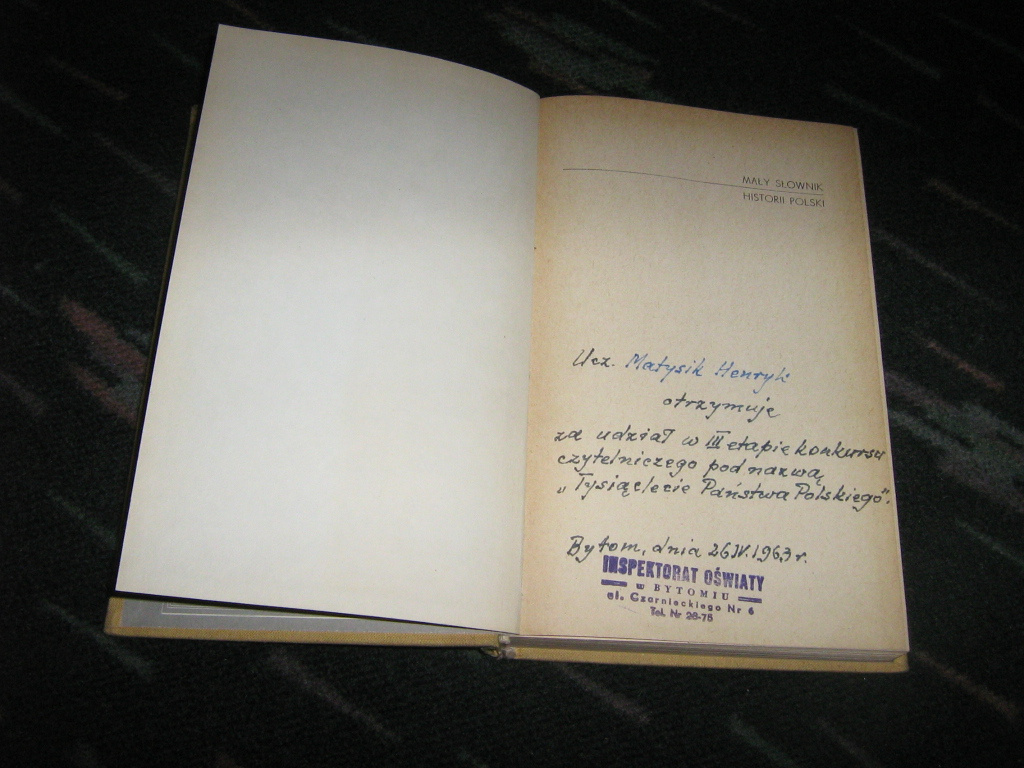 MAŁY SŁOWNIK
HISTORII POLSKI
Ucz. Matysik Henryk
otrzymuje
za udział w III etapie konkursu
czytelniczego pod nazwą
„Tysiąclecie Państwa Polskiego".
Bytom, dnia 26.IV.1963 r.
INSPEKTORAT OŚWIATY
w BYTOMIU
ul. Czarnieckiego Nr 6
Tel. Nr 28-75